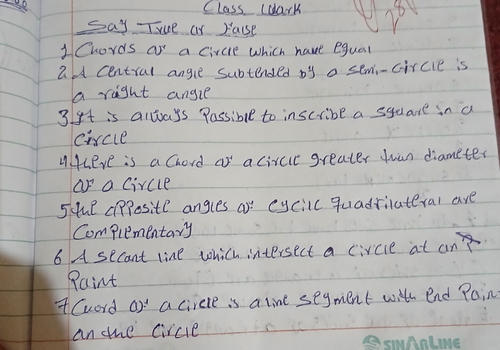 Class Work
Say True or False
1. Chords of a circle which have equal
2. A central angle subtended by a semi-circle is
a right angle
3. It is always Possible to inscribe a square in a
circle
4. there is a chord of a circle greater than diameter
of a circle
5. the opposite angles of cyclic quadrilateral are
Complementary
6 A secant line which intersect a circle at an
Point
7 Chord of a circle is a line segment with end Point
on the circle
SINARLINE